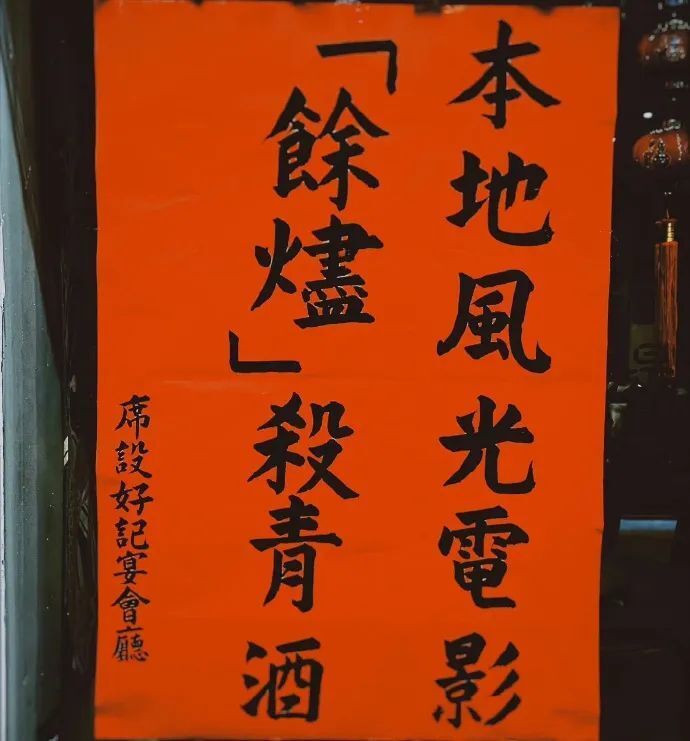 本地風光電影
「餘燼」殺青酒
席設好記宴會廳